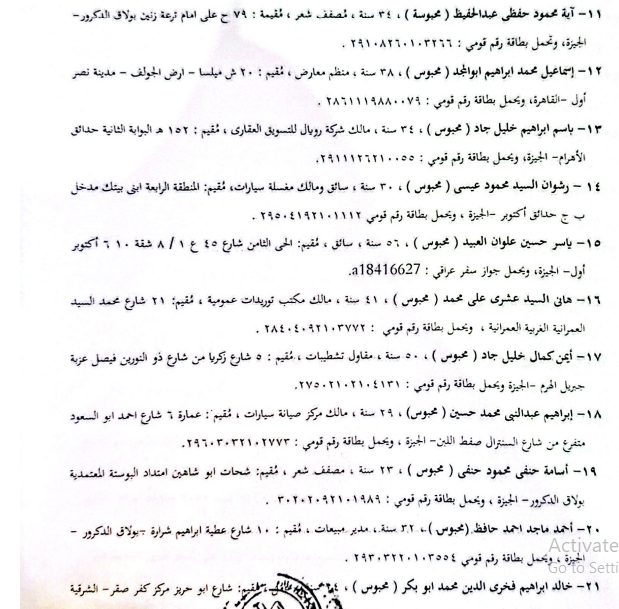 ١١- آية محمود حفظى عبدالحفيظ ( محبوسة ) ، ٣٤ سنة ، مُصفف شعر ، مُقيمة : ٧٩ ح على امام ترعة زنين بولاق الدكرور-
الجيزة، وتحمل بطاقة رقم قومي : ٢٩١٠٨٢٦٠١٠٣٢٦٦ .
١٢- إسماعيل محمد ابراهيم ابوالمجد ( محبوس ) ، ٣٨ سنة ، منظم معارض ، مُقيم : ٢٠ ش ميلسا - ارض الجولف - مدينة نصر
أول -القاهرة، ويحمل بطاقة رقم قومي : ٢٨٦١١١٩٨٨٠٠٧٩ .
١٣- باسم ابراهيم خليل جاد ( محبوس ) ، ٣٤ سنة ، مالك شركة رويال للتسويق العقارى ، مُقيم : ١٥٢ هـ البوابة الثانية حدائق
الأهرام- الجيزة، ويحمل بطاقة رقم قومي : ٢٩١١١٢٦٢١٠٠٥٥.
١٤ - رشوان السيد محمود عيسى ( محبوس ) ، ٣٠ سنة ، سائق ومالك مغسلة سيارات، مُقيم: المنطقة الرابعة ابنى بيتك مدخل
ب ج حدائق أكتوبر -الجيزة ، ويحمل بطاقة رقم قومي ٢٩٥٠٤١٩٢١٠١١١٢ .
١٥- ياسر حسين علوان العبيد ( محبوس ) ، ٥٦ سنة ، سائق ، مُقيم: الحى الثامن شارع ٤٥ ع ١ / ٨ شقة ١٠ ٦ أكتوبر
أول- الجيزة، ويحمل جواز سفر عراقي : a18416627.
١٦- هانى السيد عشرى على محمد ( محبوس ) ، ٤١ سنة ، مالك مكتب توريدات عمومية ، مُقيم: ٢١ شارع محمد السيد
العمرانية الغربية العمرانية ، ويحمل بطاقة رقم قومي : ٢٨٤٠٤٠٩٢١٠٣٧٧٢ .
١٧- أيمن كمال خليل جاد ( محبوس ) ، ٥٠ سنة ، مقاول تشطيبات ، مُقيم : ٥ شارع زكريا من شارع ذو النورين فيصل عزبة
جبريل الهرم -الجيزة ويحمل بطاقة رقم قومي : ٢٧٥٠٢١٠٢١٠٤١٣١.
١٨- إبراهيم عبدالنبى محمد حسين ( محبوس)، ٢٩ سنة ، مالك مركز صيانة سيارات ، مُقيم: عمارة ٦ شارع احمد ابو السعود
متفرع من شارع السنترال صفط اللبن- الجيزة ، ويحمل بطاقة رقم قومي : ٢٩٦٠٣٠٣٢١٠٢٧٧٣.
١٩- أسامة حنفى محمود حنفى ( محبوس ) ، ٢٣ سنة ، مصفف شعر ، مُقيم: شحات ابو شاهين امتداد البوستة المعتمدية
بولاق الدكرور- الجيزة ، ويحمل بطاقة رقم قومي : ٣٠٢٠٢٠٩٢١٠١٩٨٩ .
٢٠- أحمد ماجد احمد حافظ (محبوس )، ٣٢ سنة، مدير مبيعات ، مُقيم : ١٠ شارع عطية ابراهيم شرارة -بولاق الدكرور -
الجيزة ، ويحمل بطاقة رقم قومي ٢٩٣٠٣٢٢٠١٠٣٥٥٤ .
Activate
Go to Setti
٢١- خالد ابراهيم فخرى الدين محمد ابو بكر ( محبوس ) ، مُقيم: شارع ابو حريز مركز كفر صقر- الشرقية